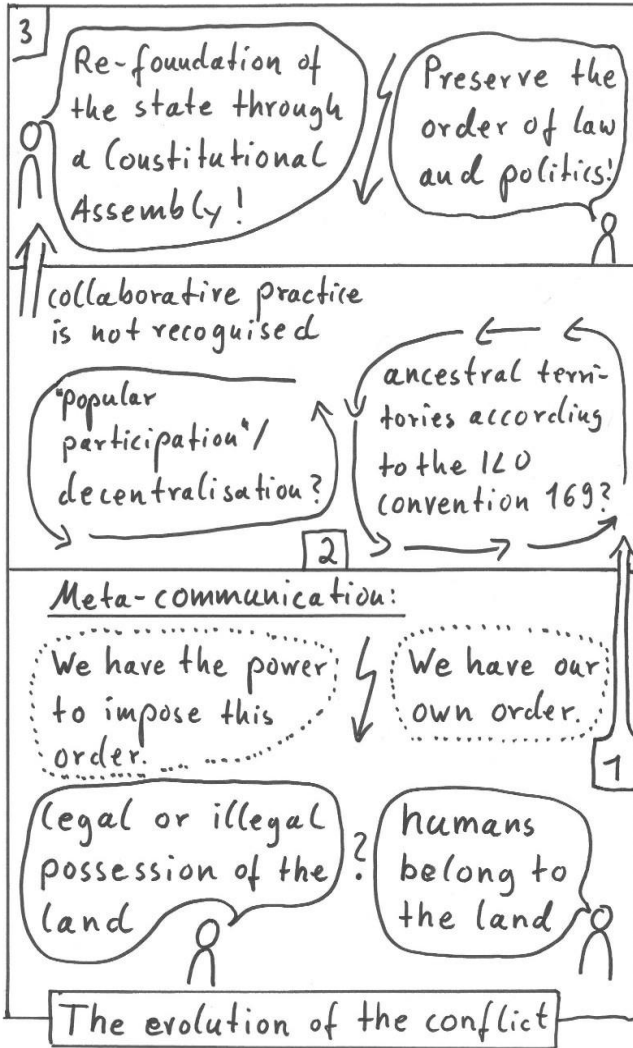 3
Re-foundation of
the state through
a Constitutional
Assembly!
Preserve the
order of law
and politics!
collaborative practice
is not recognised
"popular
participation"/
decentralisation?
ancestral terri-
tories according
to the ILO
convention 169?
2
Meta-communication:
We have the power
to impose this
order.
We have our
own order.
1
legal or illegal
possession of the
land
?
humans
belong to
the land
The evolution of the conflict